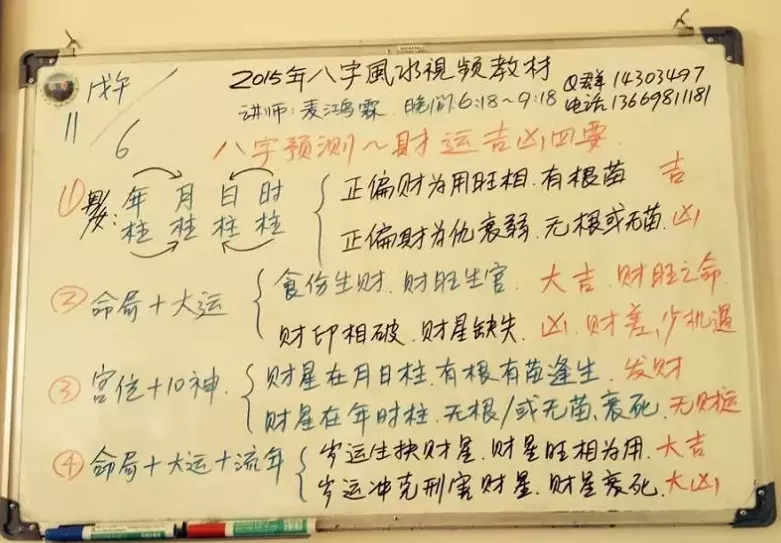 戊午
11/6
2015年八字風水視频教材
Q群 14303497
讲师:麦鴻霖. 晚间:6:18~9:18
电话:13669811181
八字预测~财运吉凶四要
① 男女: 年柱 月柱 日柱 时柱
正偏财为用旺相.有根苗 吉
正偏财为仇衰弱.无根或无苗.凶
② 命局+大运
食伤生财.财旺生官. 大吉.财旺之命.
财印相破.财星缺失. 凶.财差,少机遇
③ 宫位+10神.
财星在月日柱.有根有苗逢生. 发财
财星在年时柱.无根/或无苗、衰死.无财运
④ 命局+大运+流年
岁运生扶财星.财星旺相为用.大吉
岁运冲克刑害财星.财星衰死.大凶